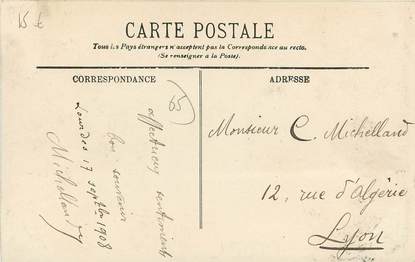 15 €
CARTE POSTALE
Tous les Pays étrangers n'acceptent pas la Correspondance au recto.
(Se renseigner à la Poste).
CORRESPONDANCE
65
affectueux sentiments
bon souvenir
Lourdes 17 septbre 1908
Michelland
ADRESSE
Monsieur C. Michelland
12, rue d'Algérie
Lyon